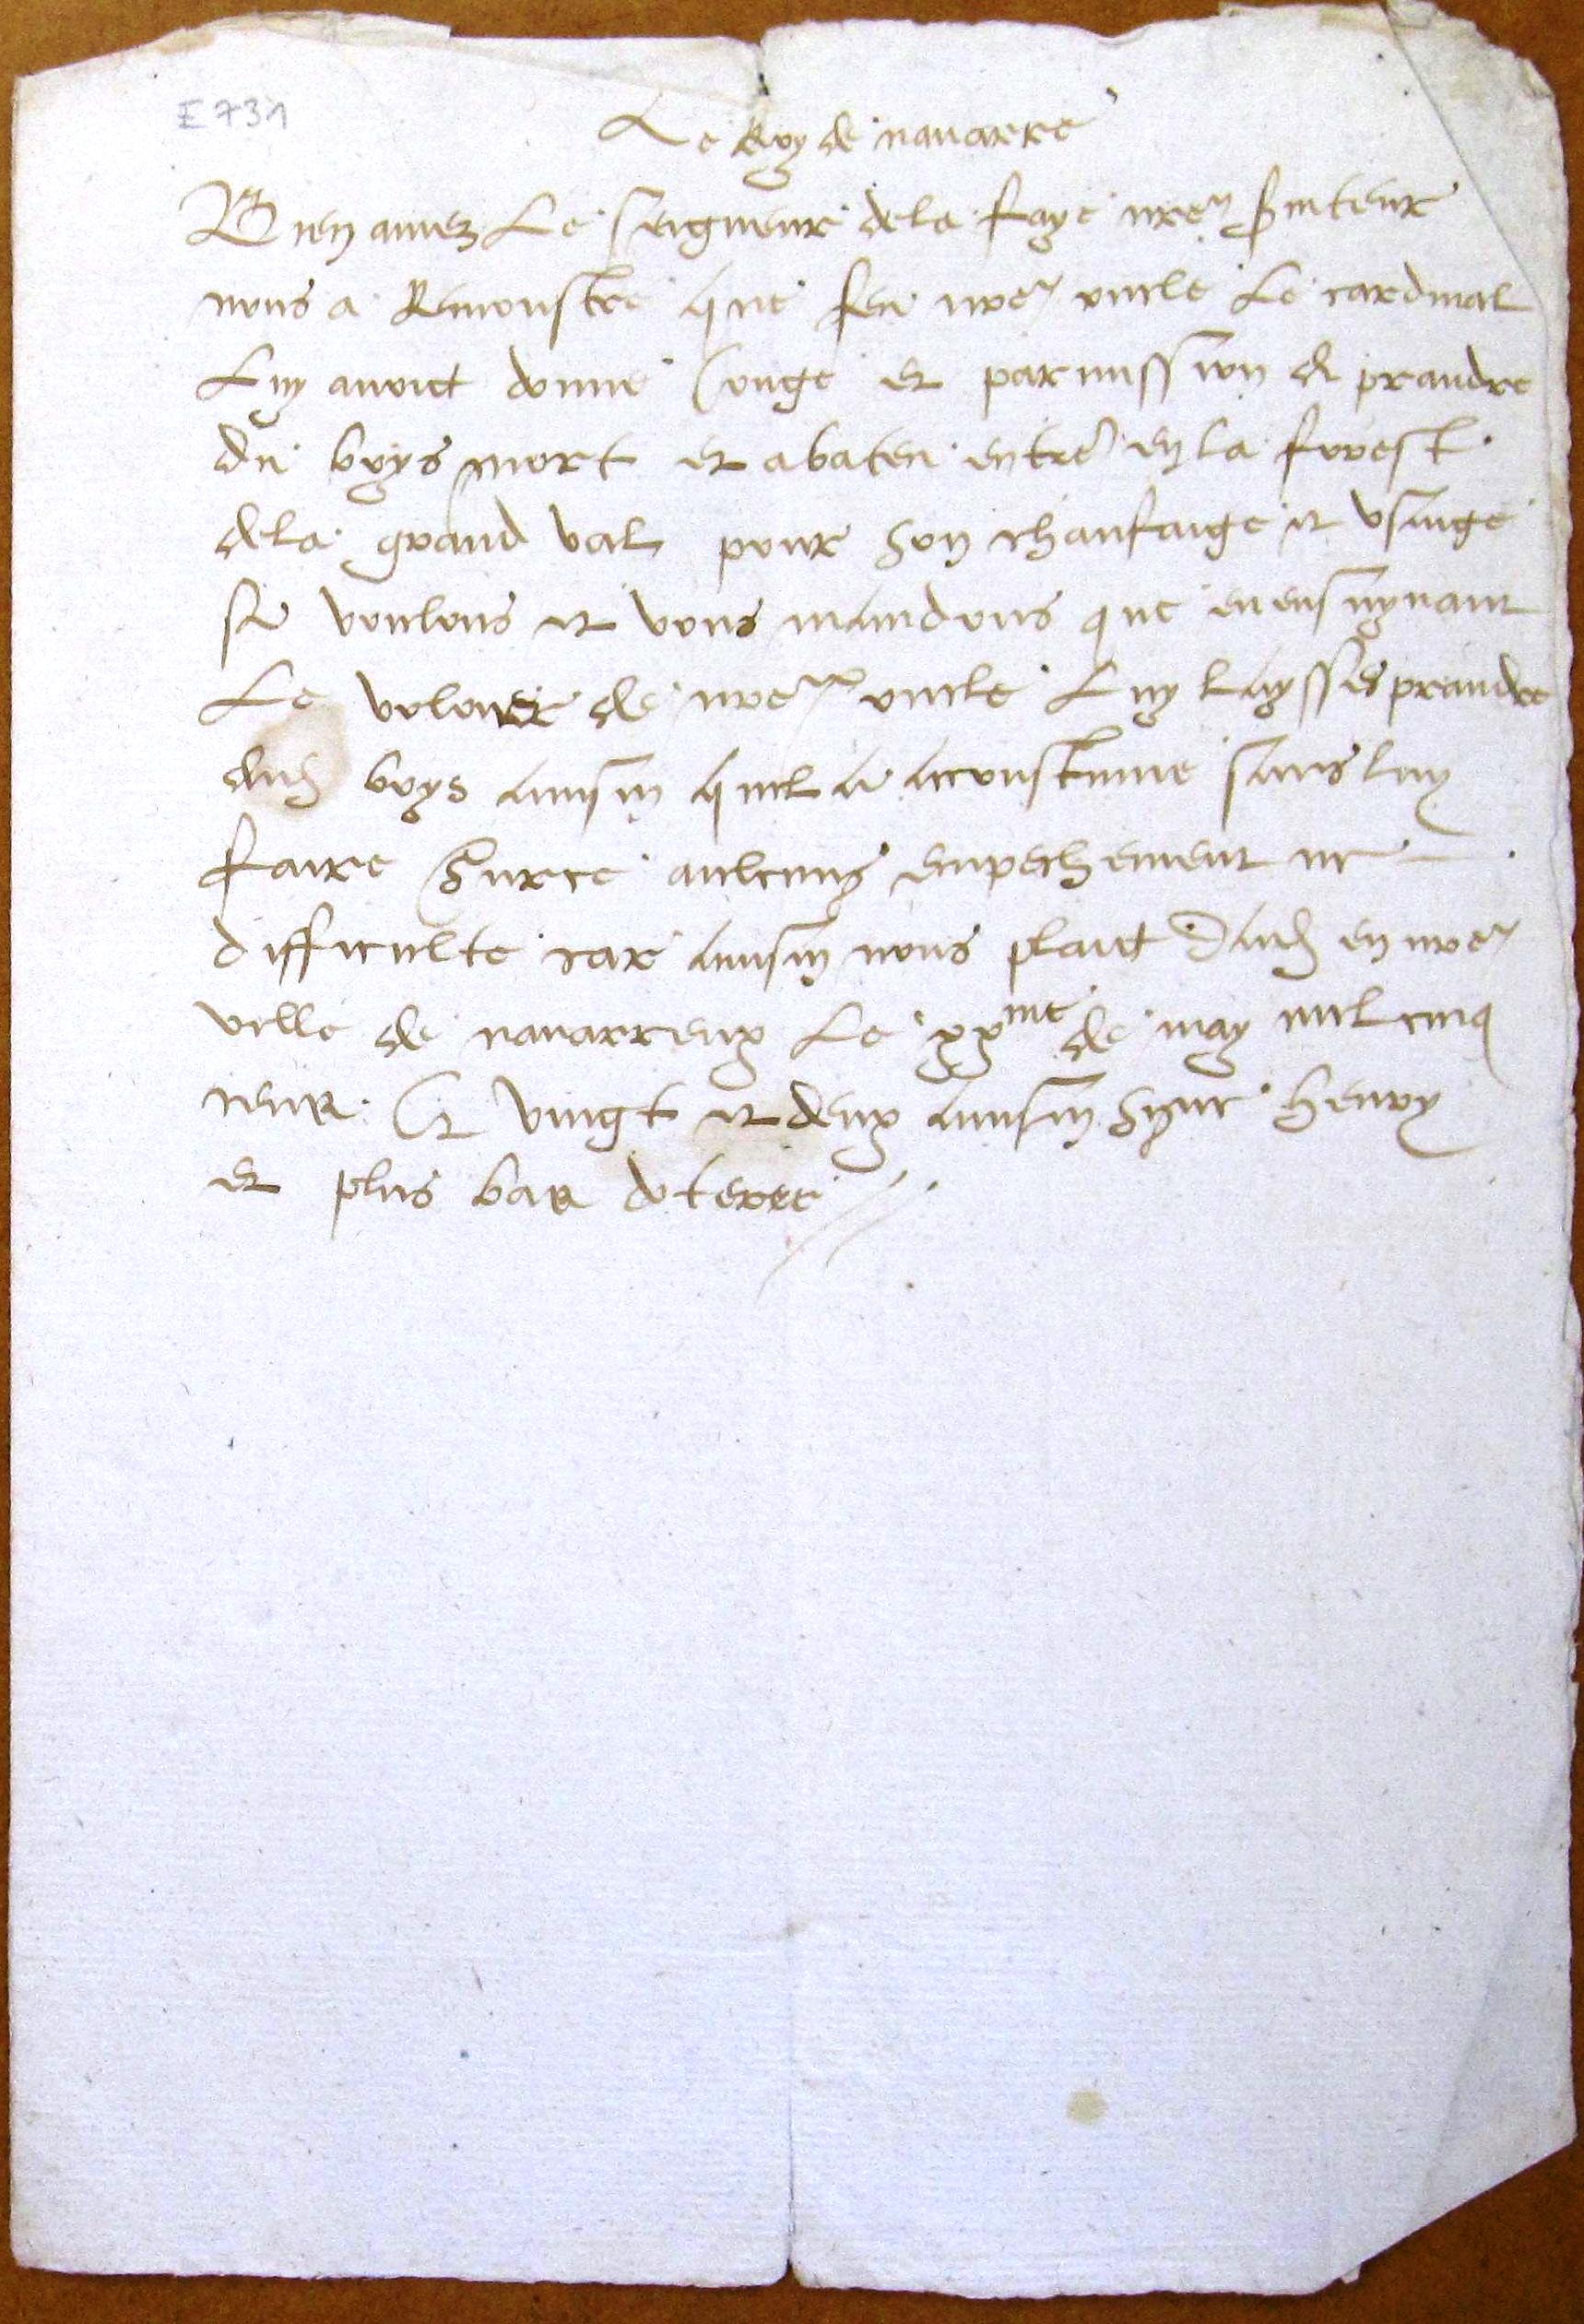 E 731
Le Roy de navarre
Bien amez Le seigneur dela faye nre s͛viteur
nous a Remonstre que feu nre oncle Le cardinal
Luy avoict donne Conge et parmission de prandre
du boys mort et abateu entre en la forest
dela grand val pour son chaufaige et usaige
sy voulons et vous mandons que en ensuyvant
Le voloir de nre oncle Luy laysses prandre
dud boys ainsin quil a acoustume sans luy
faire surce aulcung enpechement ne
difficulte car ainsin nous plaict Dud en nre
ville de navarreux Le xxme de may mil cinq
cens Et vingt et deux ainsin syne henry
et plus bas